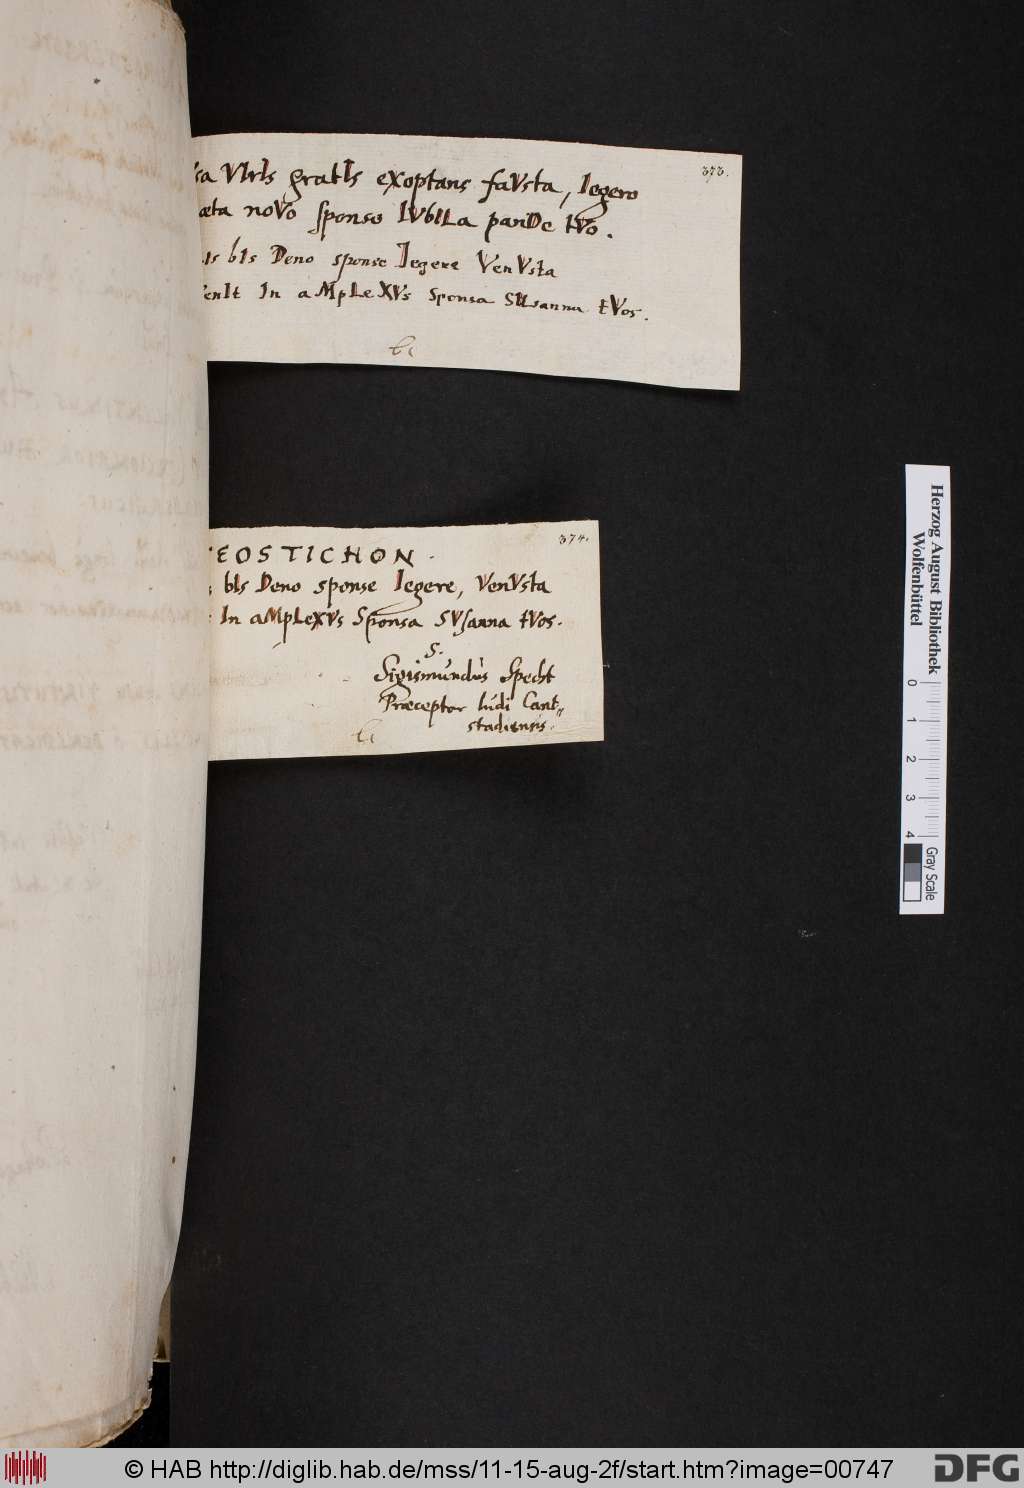 373.
sa VIrIs gratIs eXoptans faVsta, Iegero
æta noVo sponso IVbILa panDe tVo.
Is bIs Deno sponse Iegere VenVsta
enIt In aMpLeXVs sponsa SVsanna tVos.
374.
EOSTICHON.
bIs Deno sponse Iegere, VenVsta
In aMpLeXVs Sponsa SVsanna tVos.
S.
Sigismundus Specht
Præceptor ludi Cant„
stadiensis.
Herzog August Bibliothek
Wolfenbüttel
0 1 2 3 4
Gray Scale
© HAB http://diglib.hab.de/mss/11-15-aug-2f/start.htm?image=00747
DFG